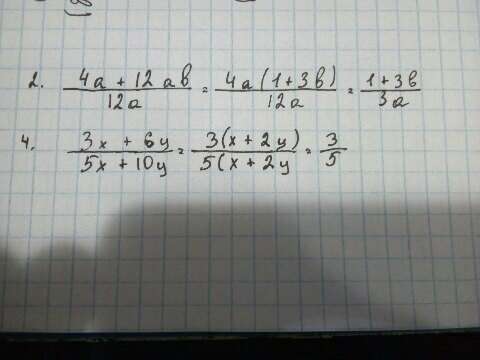 2. (4a + 12ab)/(12a) = (4a(1+3b))/(12a) = (1+3b)/(3a)
4. (3x + 6y)/(5x + 10y) = (3(x + 2y))/(5(x + 2y) = 3/5